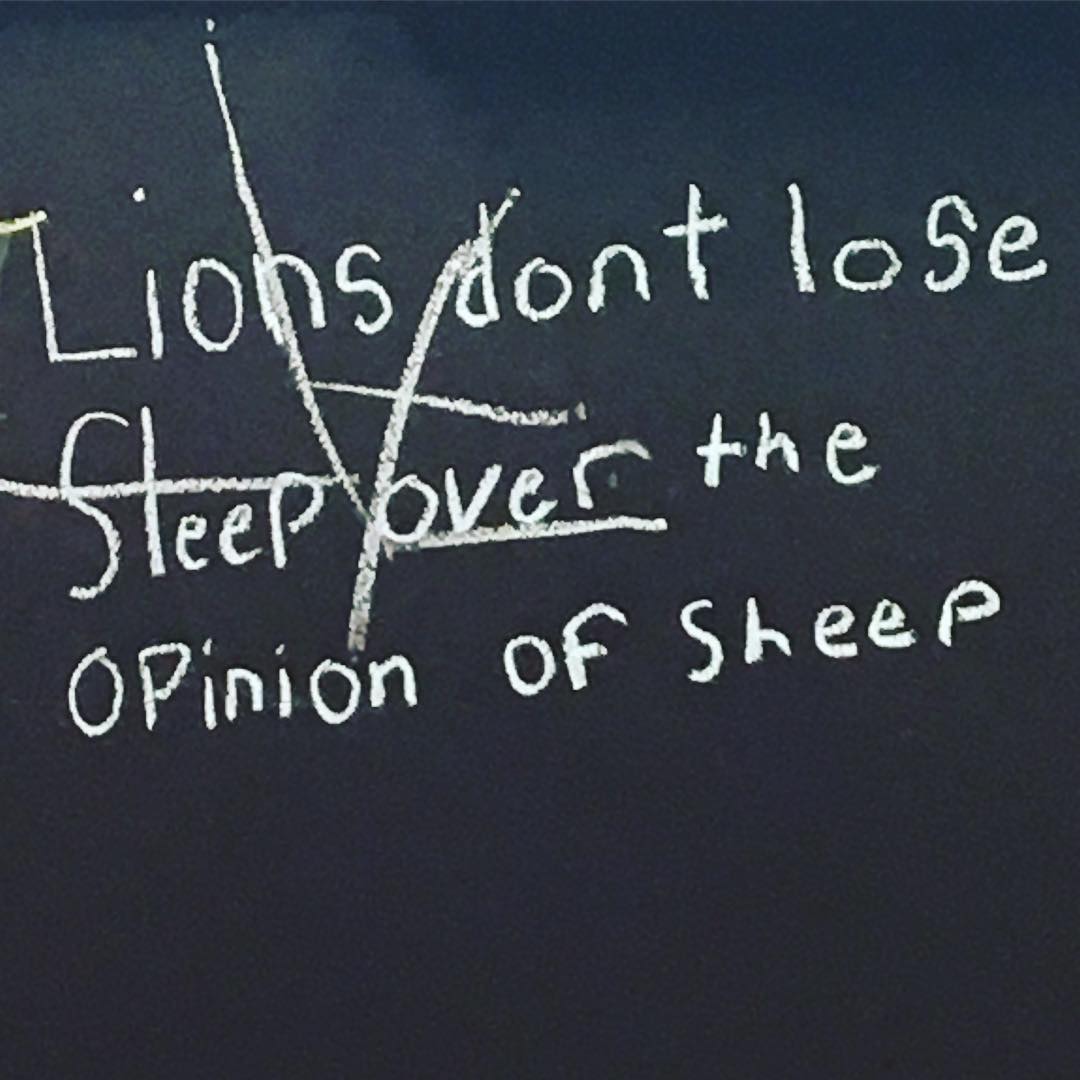 Lions dont lose
Sleep over the
OPinion of Sheep